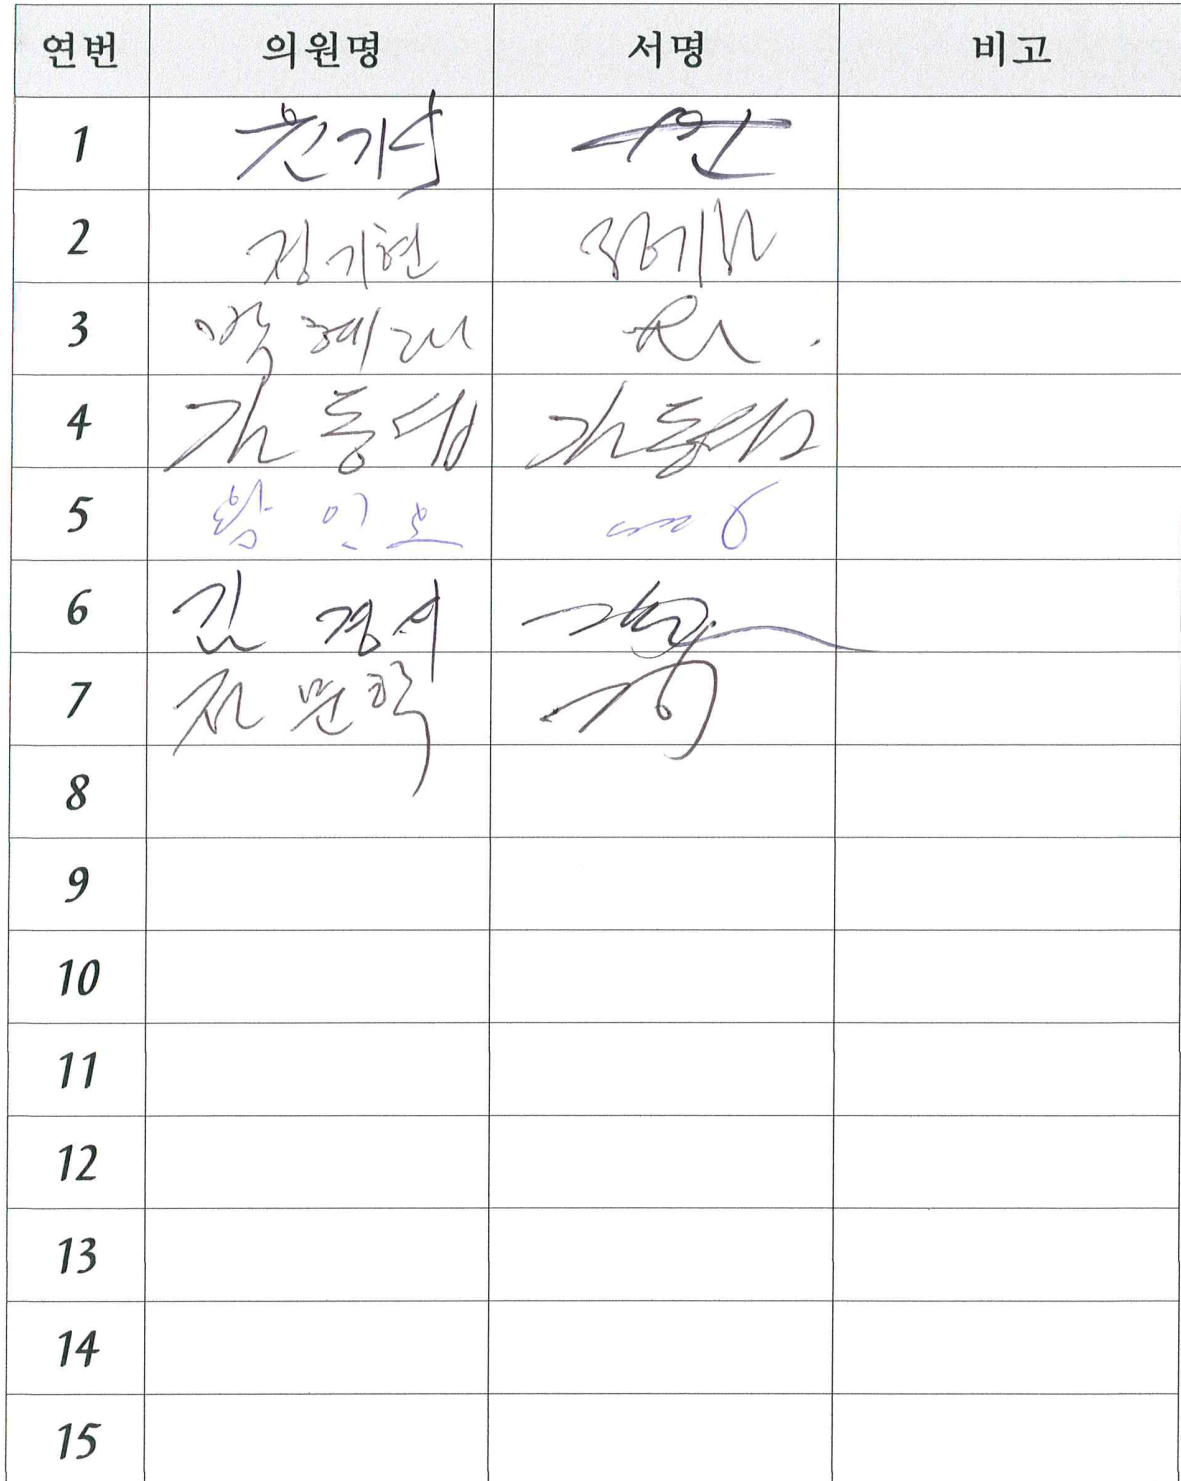 연번 의원명 서명 비고
1
2 정기현 정기현
3 박혜련
4 김동섭 김동섭
5 황인호
6 김경시
7 전문학
8
9
10
11
12
13
14
15